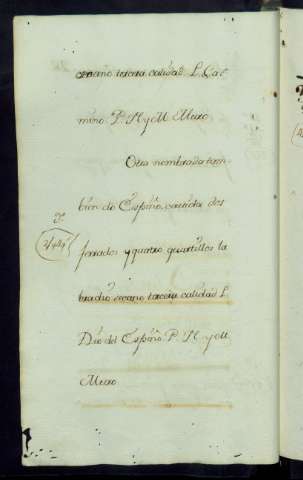 secano tercera calidad. L. Ca-
mino P. N y M Muro
Otra nombrada tam-
bien do Espiño, cavida dos
ferrados y quatro quartillos la-
bradio secano tercera calidad L.
Dro del Espiño. P. N y M
Muro